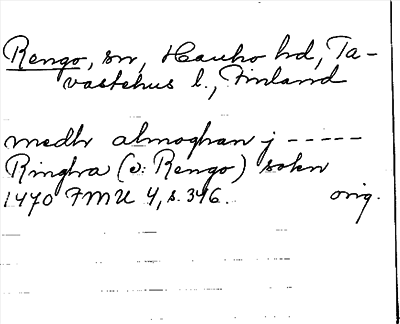 Rengo, sn, Hauho hd, Ta-
vastehus l., Finland
medh almoghan j -----
Ringhra (ɔ: Rengo) sokn
1470 FMU 4, s. 346. orig.